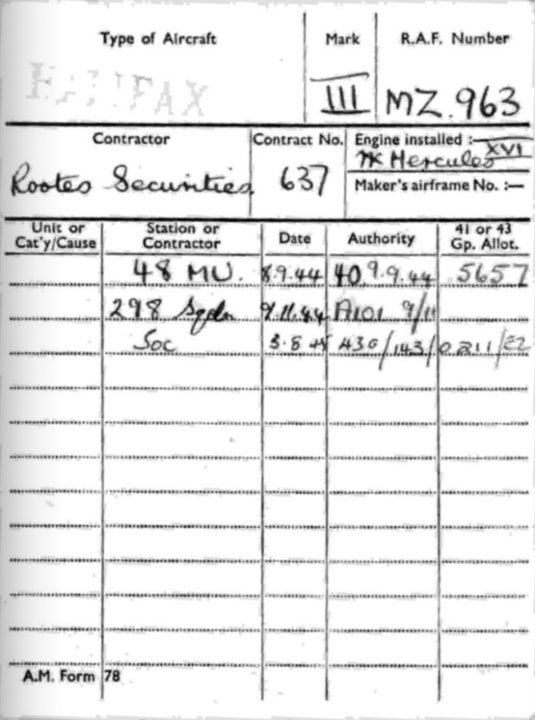 Type of Aircraft Mark R.A.F. Number
HALIFAX III MZ.963
Contractor Contract No. Engine installed :— XVI
Rootes Securities 637 Hercules
Maker's airframe No. :—
Unit or Cat'y/Cause Station or Contractor Date Authority 41 or 43 Gp. Allot.
48 MU. 8.9.44 40 9.9.44 5657
298 Sqdn 9.11.44 A101 9/11
Soc 3.8.45 430/143/0211/22
A.M. Form 78